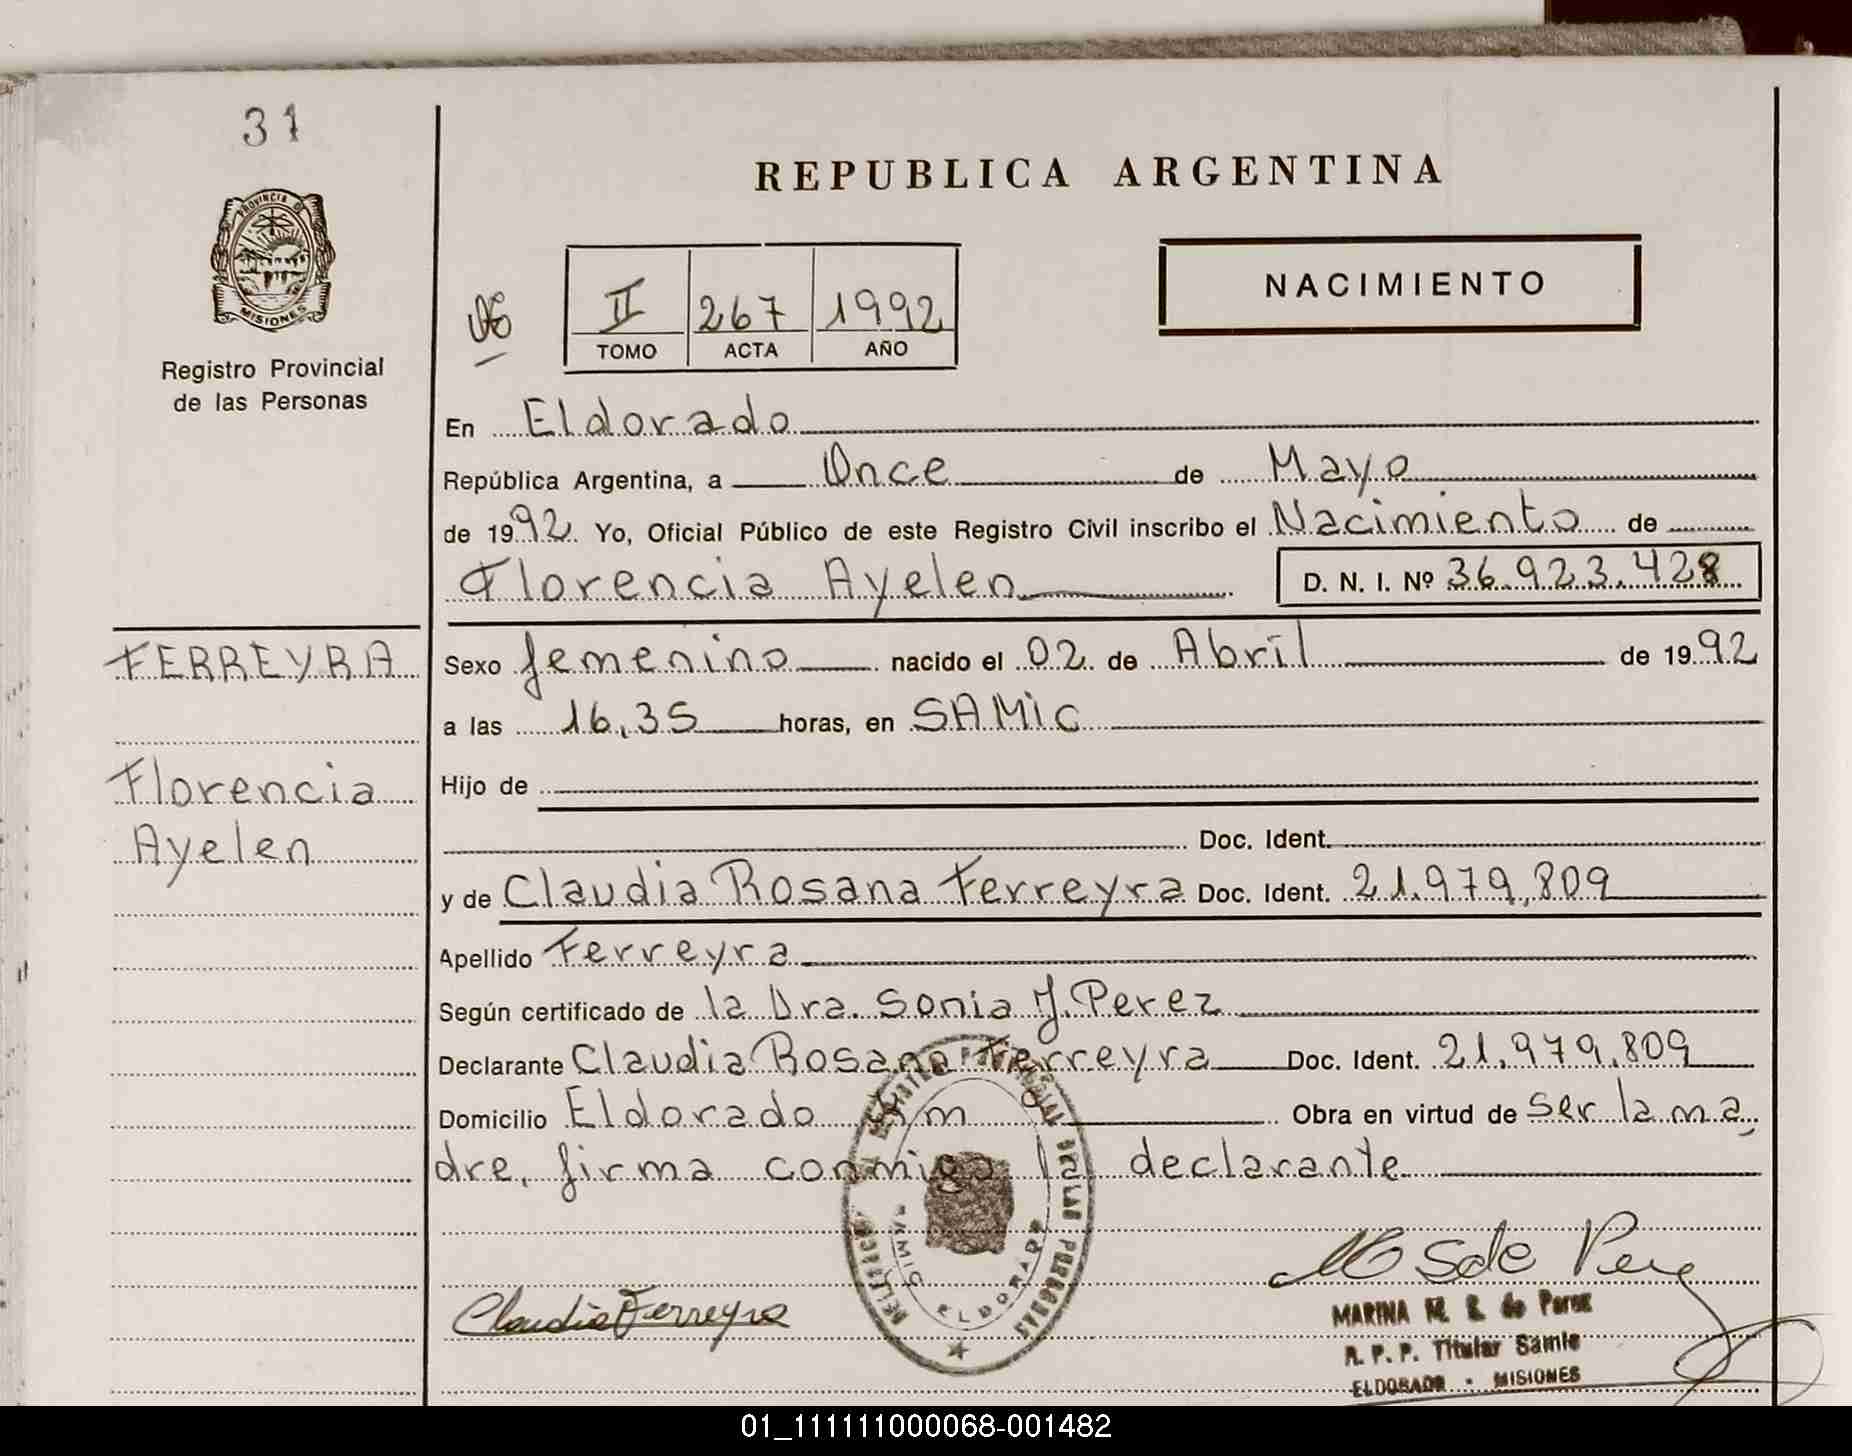 31
PROVINCIA D
MISIONES
Registro Provincial
de las Personas
FERREYRA
Florencia
Ayelen
REPUBLICA ARGENTINA
II 267 1992
TOMO ACTA AÑO
NACIMIENTO
En Eldorado
República Argentina, a Once de Mayo
de 1992 Yo, Oficial Público de este Registro Civil inscribo el Nacimiento de
Florencia Ayelen D. N. I. Nº 36.923.428
Sexo femenino nacido el 02 de Abril de 1992
a las 16,35 horas, en SAMIC
Hijo de
Doc. Ident.
y de Claudia Rosana Ferreyra Doc. Ident. 21.979.809
Apellido Ferreyra
Según certificado de la Dra. Sonia J. Perez
Declarante Claudia Rosana Ferreyra Doc. Ident. 21.979.809
Domicilio Eldorado Obra en virtud de ser la ma
dre, firma conmigo la declarante
SAMIC ELDORADO
Claudia Ferreyra
MARINA M. S. de Perez
R. P. P. Titular Samic
ELDORADO - MISIONES
01_111111000068-001482